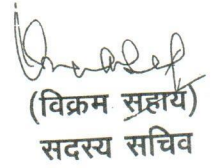 (विक्रम सहाय)
सदस्य सचिव